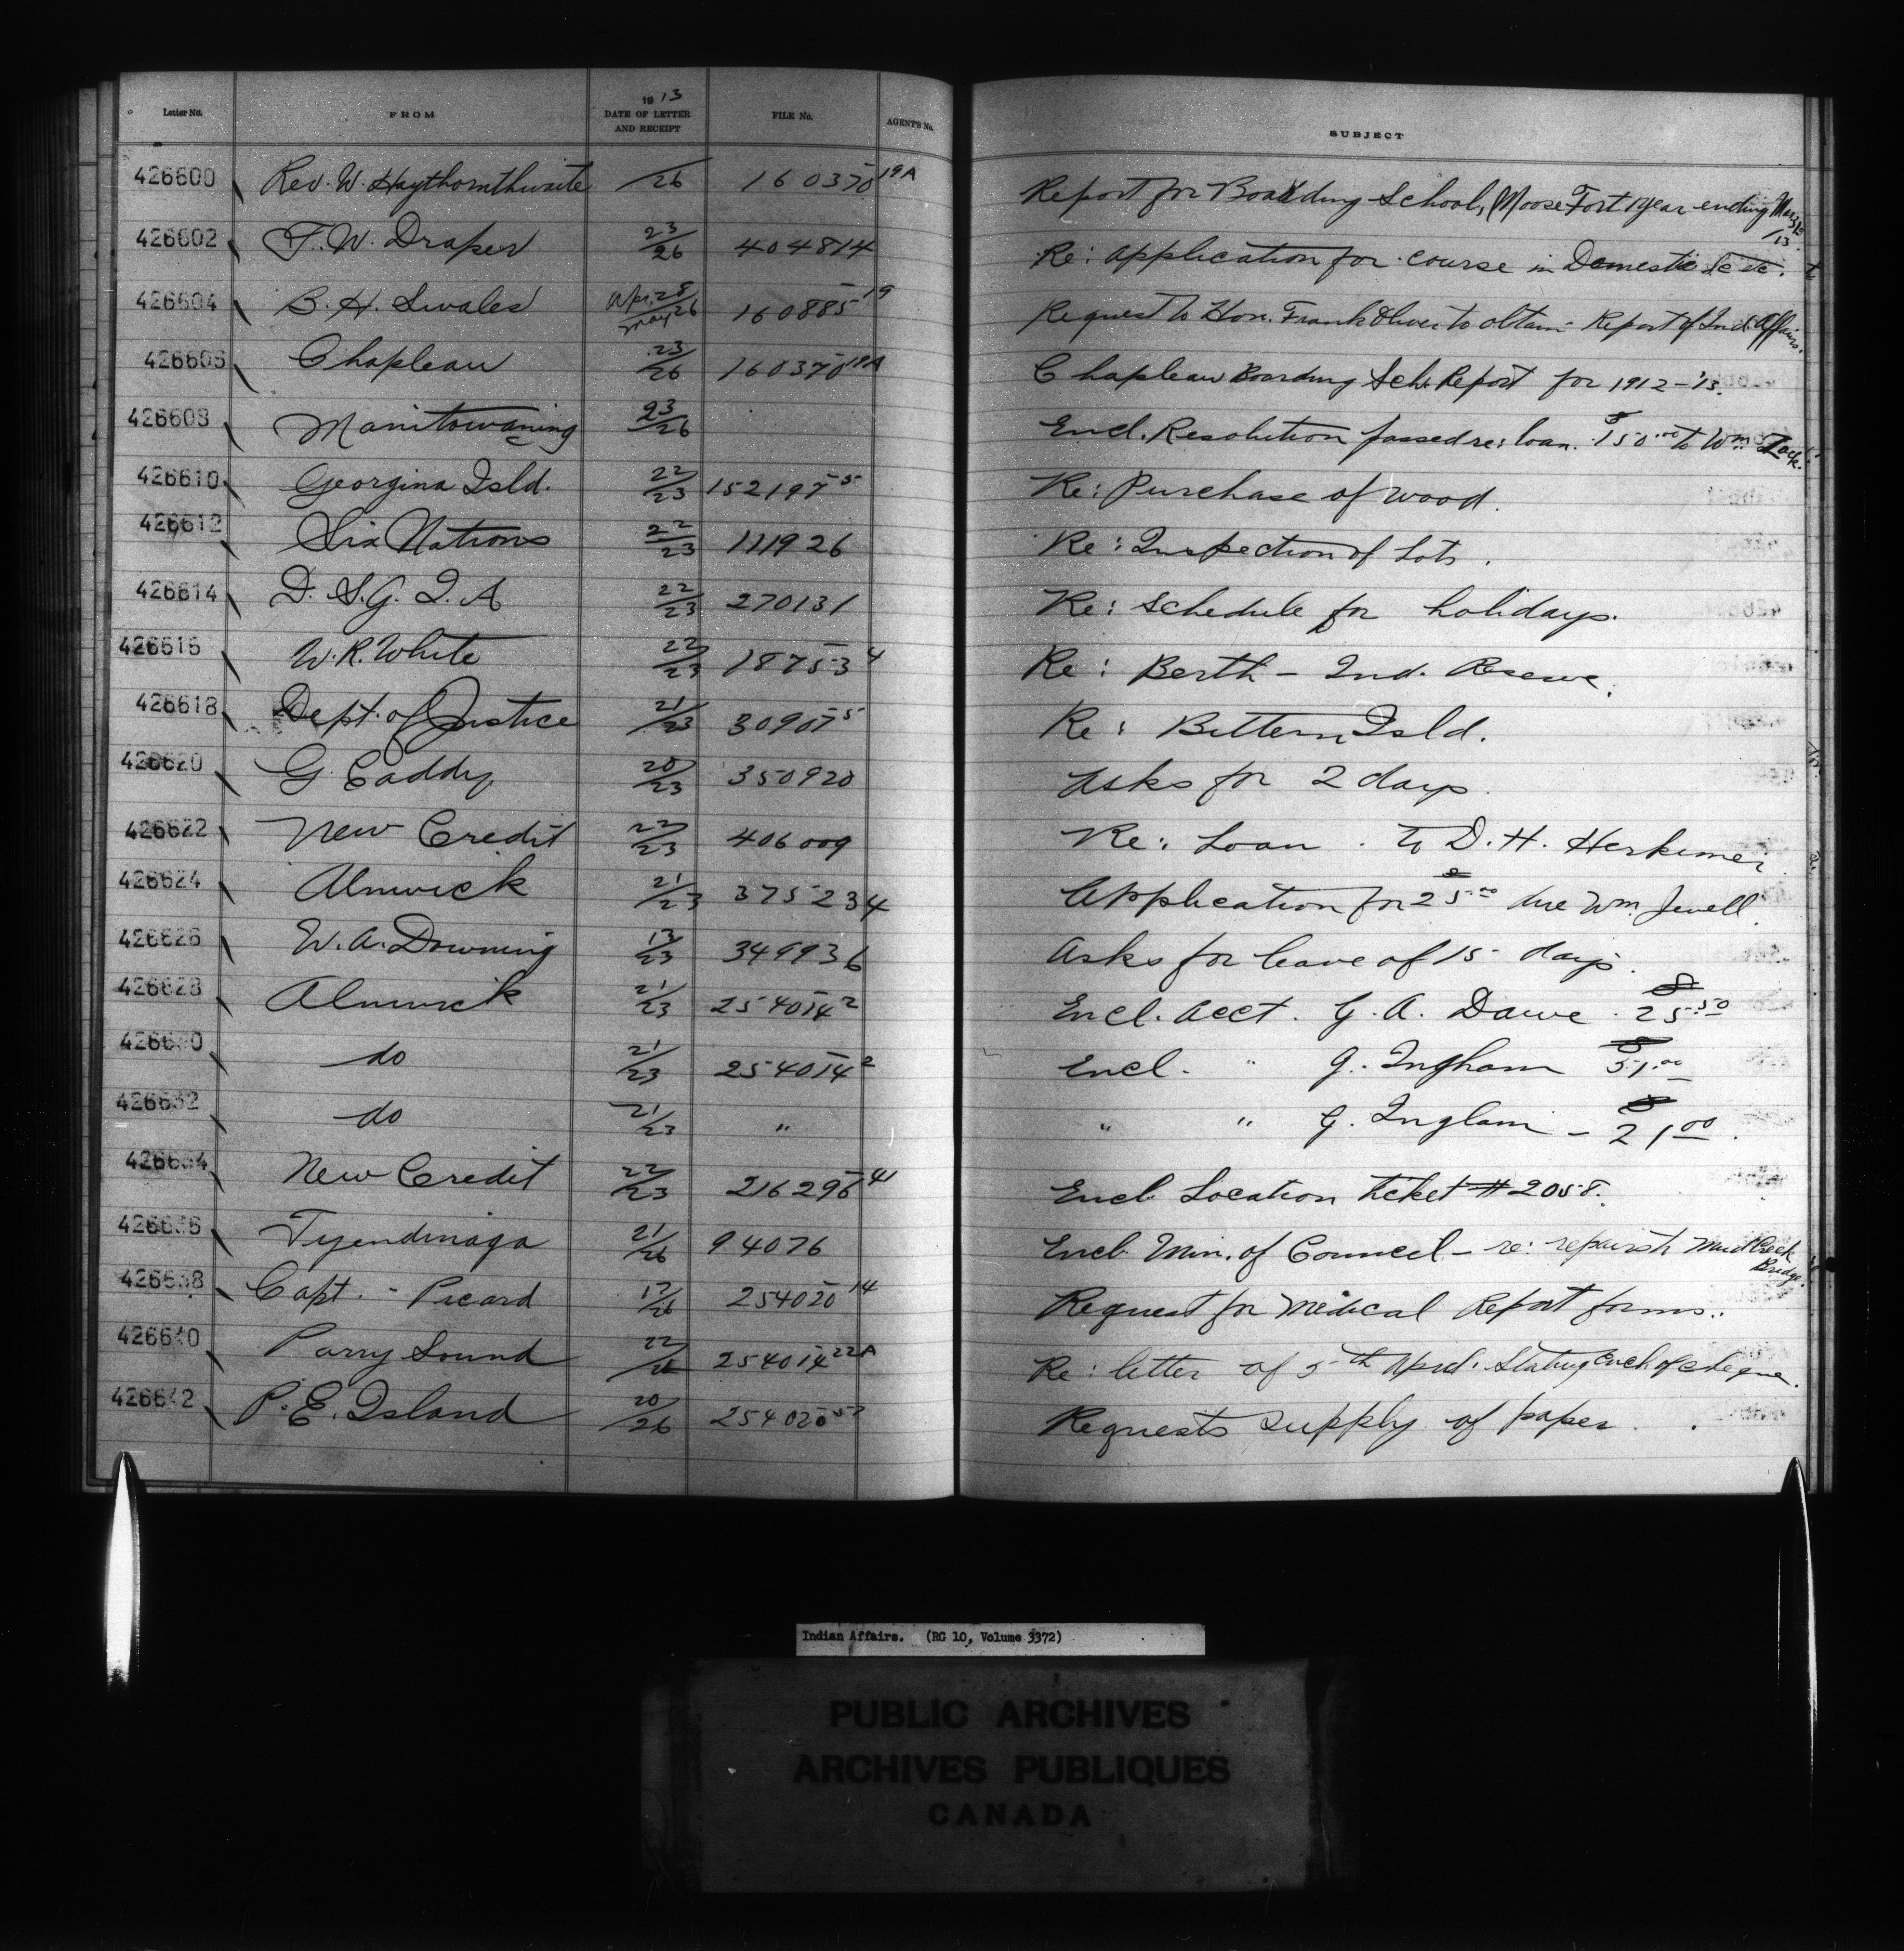 Letter No. FROM 1913 DATE OF LETTER AND RECEIPT FILE No. AGENT'S No. SUBJECT
426600 Rev. W. Haythornthwaite /26 160370 19A Report for Boarding School, Moose Fort year ending Mar 31 /13.
426602 T. W. Draper 23/26 404814 Re: application for course in Domestic Sc
426604 B. H. Swales Apr. 28/May 26 160885 19 Request to Hon. Frank Oliver to obtain Report of Ind. Affairs.
426606 Chapleau 23/26 160370 19A Chapleau Boarding Sch. Report for 1912-'13.
426608 Manitowaning 23/26 Encl. Resolution passed re: loan. $150.00 to Wm
426610 Georgina Isld. 22/23 152197 5 Re: Purchase of wood.
426612 Six Nations 22/23 111926 Re: Inspection of Lots.
426614 D. S. G. I. A 22/23 270131 Re: Schedule for holidays.
426616 W. R. White 22/23 18753 4 Re: Berth - Ind. Reserve.
426618 Dept. of Justice 21/23 30907 5 Re: Bittern Isld.
426620 G. Eaddy 20/23 350920 Asks for 2 days.
426622 New Credit 22/23 406009 Re: Loan. to D. H. Herkimer
426624 Alnwick 21/23 375234 Application for $25.00 due Wm. Jewell
426626 W. A. Downing 13/23 349936 Asks for leave of 15 days.
426628 Alnwick 21/23 254014 2 Encl. Acct. G. A. Dawe. $25.50
426630 do 21/23 254014 2 Encl. " G. Ingham $51.00
426632 do 21/23 " " " G. Ingham - $21.00.
426634 New Credit 22/23 216296 41 Encl. Location ticket # 2058.
426636 Tyendinaga 21/26 94076 Encl. Min. of Council - re: repairs to Mud Creek Bridge.
426638 Capt. - Picard 17/26 254020 14 Request for Medical Report forms.
426640 Parry Sound 22/26 254014 22A Re: letter of 5th April: Stating Encl. of cheque.
426642 P. E. Island 20/26 254020 Requests supply of paper.
Indian Affairs. (RG 10, Volume 3372)
PUBLIC ARCHIVES
ARCHIVES PUBLIQUES
CANADA